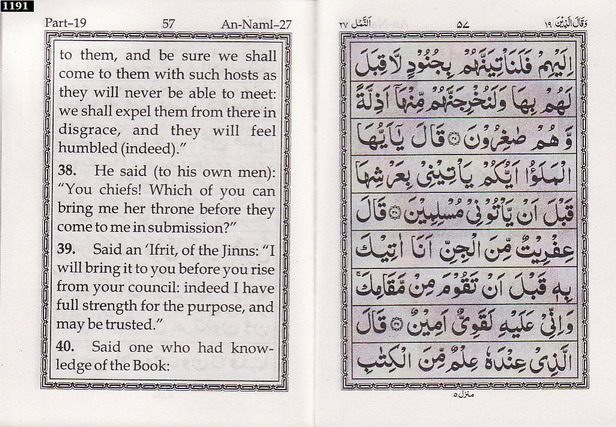 1191
Part-19 57 An-Naml-27
to them, and be sure we shall
come to them with such hosts as
they will never be able to meet:
we shall expel them from there in
disgrace, and they will feel
humbled (indeed).”
38. He said (to his own men):
“You chiefs! Which of you can
bring me her throne before they
come to me in submission?”
39. Said an ‘Ifrit, of the Jinns: “I
will bring it to you before you rise
from your council: indeed I have
full strength for the purpose, and
may be trusted.”
40. Said one who had know-
ledge of the Book:
وَقَالَ الَّذِيْنَ ١٩ ٥٧ اَلنَّمْل ٢٧
اِلَيْهِمْ فَلَنَاْتِيَنَّهُمْ بِجُنُوْدٍ لَّا قِبَلَ
لَهُمْ بِهَا وَلَنُخْرِجَنَّهُمْ مِّنْهَاۤ اَذِلَّةً
وَّهُمْ صٰغِرُوْنَ ۝٣٧ قَالَ يٰۤاَيُّهَا
الْمَلَؤُا اَيُّكُمْ يَاْتِيْنِيْ بِعَرْشِهَا
قَبْلَ اَنْ يَّاْتُوْنِيْ مُسْلِمِيْنَ ۝٣٨ قَالَ
عِفْرِيْتٌ مِّنَ الْجِنِّ اَنَا اٰتِيْكَ
بِهٖ قَبْلَ اَنْ تَقُوْمَ مِنْ مَّقَامِكَ ۚ
وَاِنِّيْ عَلَيْهِ لَقَوِيٌّ اَمِيْنٌ ۝٣٩ قَالَ
الَّذِيْ عِنْدَهٗ عِلْمٌ مِّنَ الْكِتٰبِ
منزل ٥